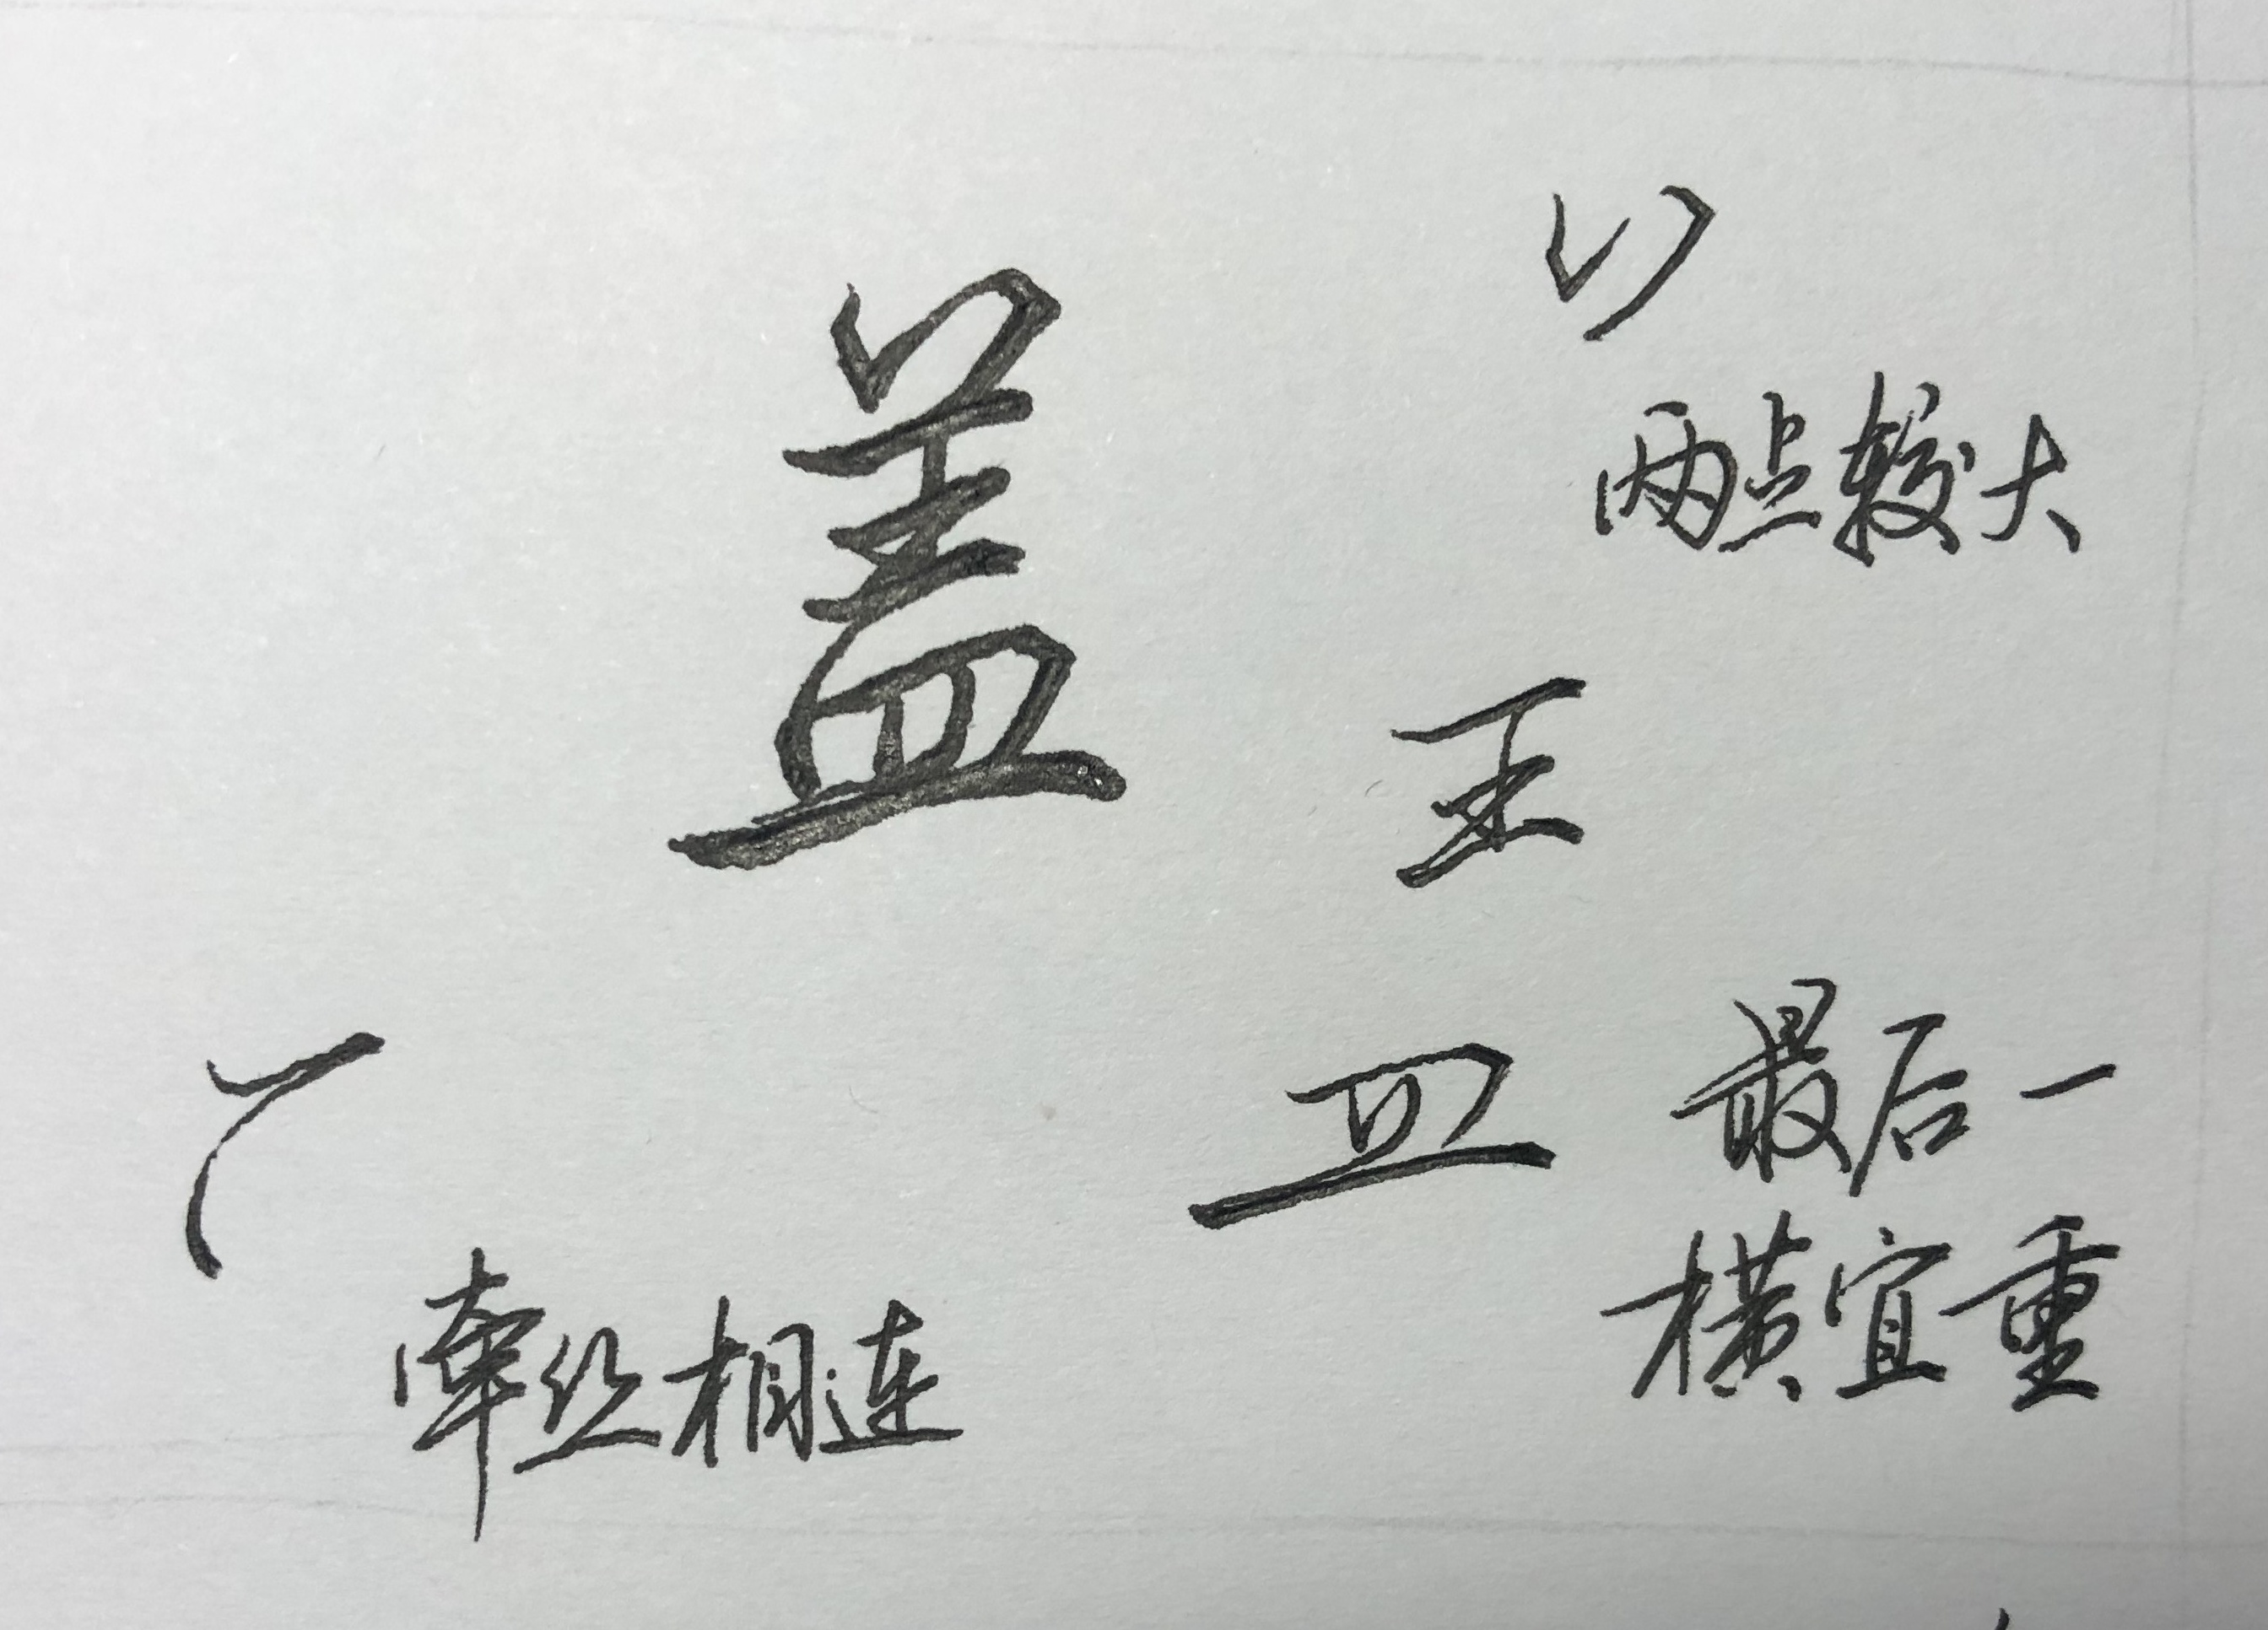 盖
两点较大
王
皿
最后一
横宜重
牵丝相连